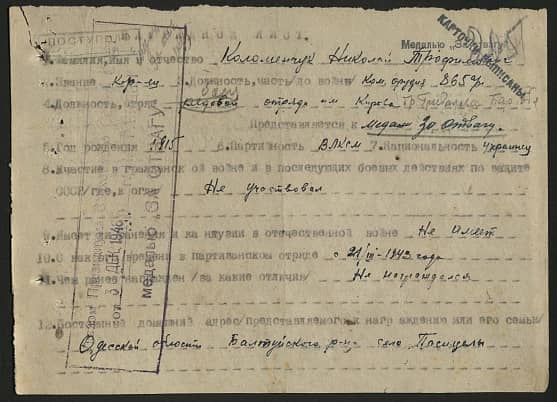 НАГРАДНОЙ ЛИСТ.
КАРТОЧКИ НАПИСАНЫ
ПОСТУПИЛ
Медалью "За отвагу"
1.Фамилия,имя и отчество Коломенчук Николай Трофимович
2.Звание 3.Должность,часть/до войны/ Ком. орудия 865
4.Должность, отряд отряда им Кирова
Представляется к медали За Отвагу.
5.Год рождения 1915 6.Партийность ВЛКСМ 7.Национальность Украинец
8.Участие в гражданской войне и в последующих боевых действиях по защите
СССР/где,когда Не участвовал
9.Имеет ли ранения и контузии в отечественной войне Не имеет
10.С какого времени в партизанском отряде с 21/III-1942 года
11.Чем ранее награжден /за какие отличия/ Не награждался
12.Постоянный домашний адрес/представляемого к награждению или его семьи/
Одесской области Балтуйского р-на село Пасицелы
от 3 ДЕК 1946
медалью "ЗА ОТВАГУ"